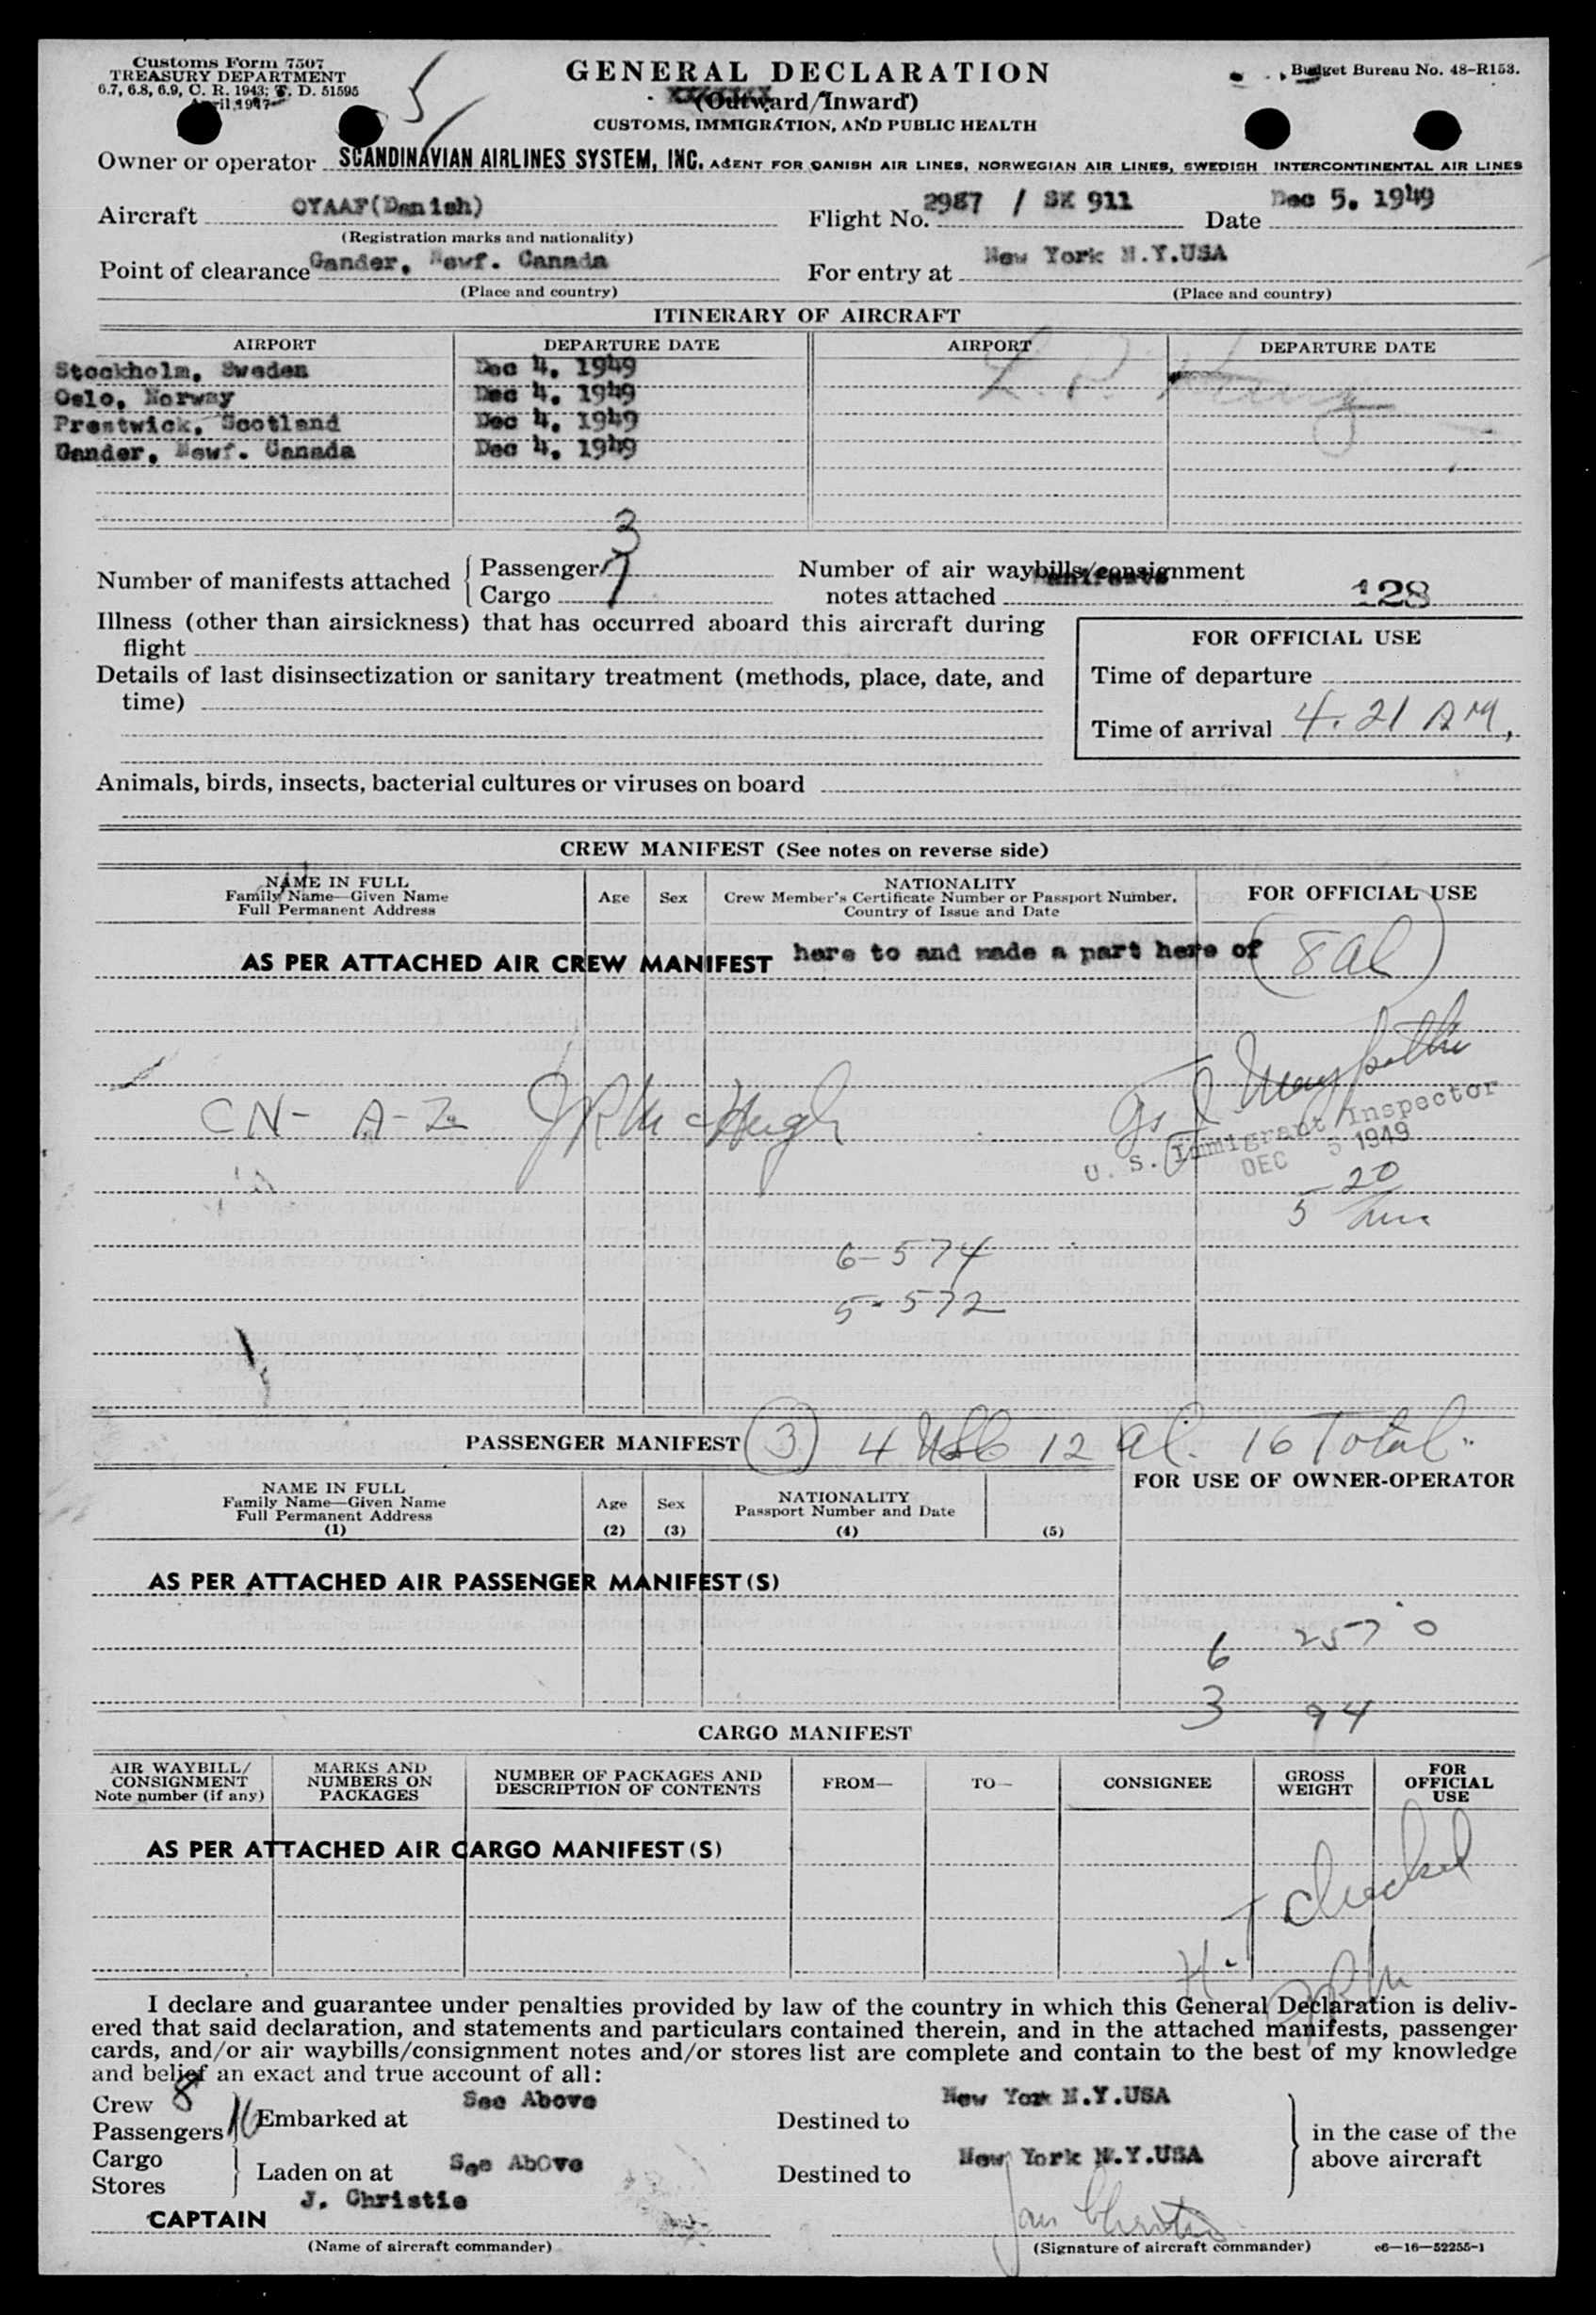 Customs Form 7507
TREASURY DEPARTMENT
6.7, 6.8, 6.9, C. R. 1943; T. D. 51595
April 1947
5
GENERAL DECLARATION
(Outward/Inward)
CUSTOMS, IMMIGRATION, AND PUBLIC HEALTH
Budget Bureau No. 48-R153.
Owner or operator SCANDINAVIAN AIRLINES SYSTEM, INC. AGENT FOR DANISH AIR LINES, NORWEGIAN AIR LINES, SWEDISH INTERCONTINENTAL AIR LINES
Aircraft OYAAF(Danish) Flight No. 2987 / SK 911 Date Dec 5. 1949
(Registration marks and nationality)
Point of clearance Gander, Newf. Canada For entry at New York N.Y.USA
(Place and country) (Place and country)
ITINERARY OF AIRCRAFT
AIRPORT DEPARTURE DATE AIRPORT DEPARTURE DATE
Stockholm, Sweden Dec 4. 1949
Oslo, Norway Dec 4. 1949
Prestwick, Scotland Dec 4. 1949
Gander, Newf. Canada Dec 4. 1949
Number of manifests attached Passenger 3
Cargo 7
Number of air waybills/consignment
notes attached 128
Illness (other than airsickness) that has occurred aboard this aircraft during
flight
Details of last disinsectization or sanitary treatment (methods, place, date, and
time)
FOR OFFICIAL USE
Time of departure
Time of arrival 4.21 AM,
Animals, birds, insects, bacterial cultures or viruses on board
CREW MANIFEST (See notes on reverse side)
NAME IN FULL
Family Name—Given Name
Full Permanent Address
Age
Sex
NATIONALITY
Crew Member's Certificate Number or Passport Number,
Country of Issue and Date
FOR OFFICIAL USE
AS PER ATTACHED AIR CREW MANIFEST here to and made a part here of (8 al)
CN- A-Z JRMcHugh
U. S. Immigrant Inspector
DEC 5 1949
5 20
6-574
5-572
PASSENGER MANIFEST (3) 4 USC 12 al. 16 Total
NAME IN FULL
Family Name—Given Name
Full Permanent Address
(1)
Age
(2)
Sex
(3)
NATIONALITY
Passport Number and Date
(4)
(5)
FOR USE OF OWNER-OPERATOR
AS PER ATTACHED AIR PASSENGER MANIFEST(S)
6 257 0
3 94
CARGO MANIFEST
AIR WAYBILL/
CONSIGNMENT
Note number (if any)
MARKS AND
NUMBERS ON
PACKAGES
NUMBER OF PACKAGES AND
DESCRIPTION OF CONTENTS
FROM—
TO—
CONSIGNEE
GROSS
WEIGHT
FOR
OFFICIAL
USE
AS PER ATTACHED AIR CARGO MANIFEST(S)
checked
I declare and guarantee under penalties provided by law of the country in which this General Declaration is deliv-
ered that said declaration, and statements and particulars contained therein, and in the attached manifests, passenger
cards, and/or air waybills/consignment notes and/or stores list are complete and contain to the best of my knowledge
and belief an exact and true account of all:
Crew 8
Passengers 16 Embarked at See Above Destined to New York N.Y.USA
Cargo
Stores Laden on at See AbOve Destined to New York N.Y.USA
in the case of the
above aircraft
CAPTAIN J. Christie
(Name of aircraft commander) (Signature of aircraft commander) c6—16—52255-1